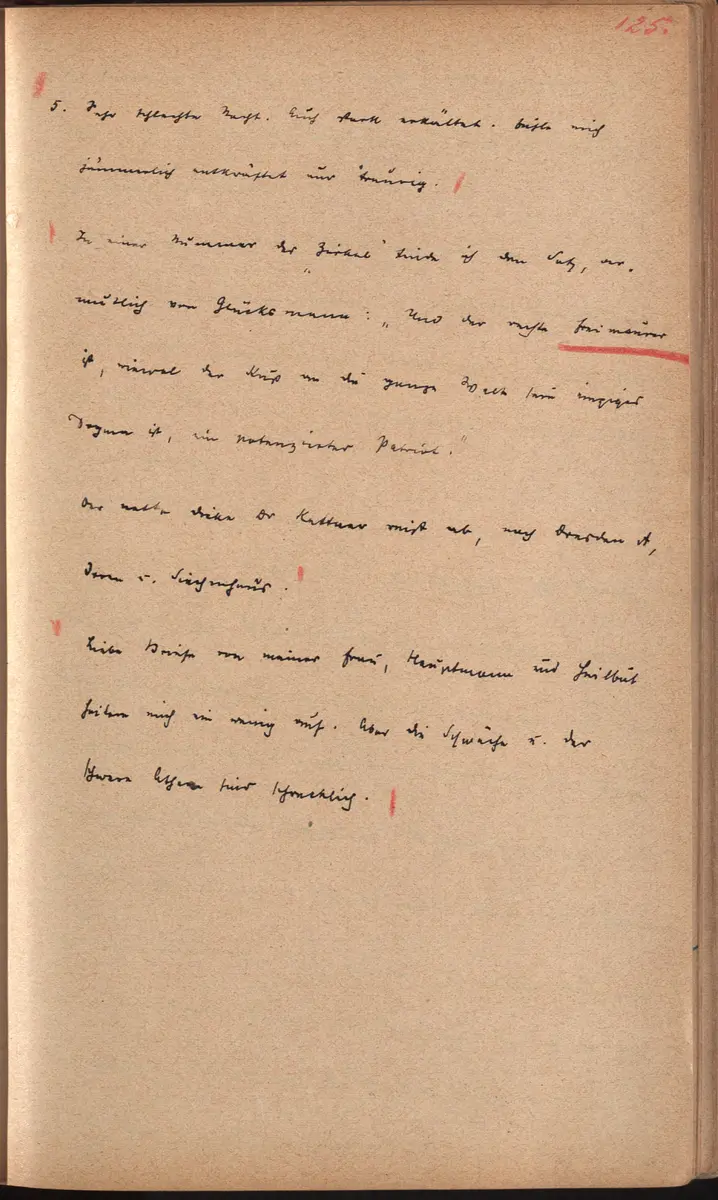 125.
5. Sehr schlechte Nacht. Auch stark erkältet. Fühle mich
jämmerlich entkräftet und traurig.
In einer Nummer des „Zirkel" finde ich den Satz, ver-
mutlich von Glücksmann: „Und der rechte Freimaurer
ist, wiewol der Kuß an die ganze Welt sein einziges
Dogma ist, ein potenzierter Patriot."
Der nette dicke Dr Kattner reist ab, nach Dresden A,
Irren u. Siechenhaus.
Liebe Briefe von meiner Frau, Hauptmann und Heilbut
heitern mich ein wenig auf. Aber die Schwäche u. der
schwere Athem sind schrecklich.